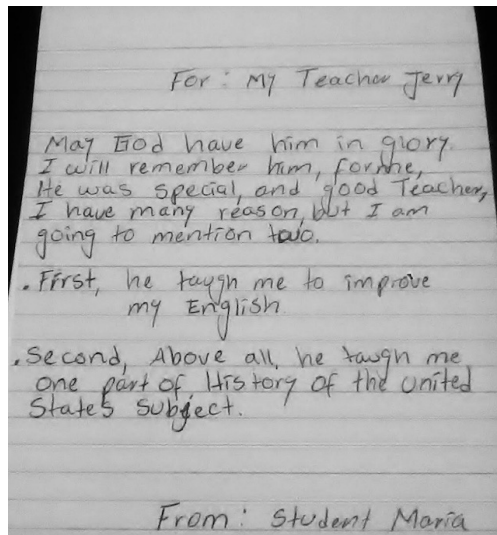 For: My Teacher Jerry
May God have him in glory.
I will remember him, for me,
He was special, and good Teacher,
I have many reason, but I am
going to mention two.
. First, he taugh me to improve
my English
. Second, Above all, he taugh me
one part of History of the United
States Subject.
From: Student Maria